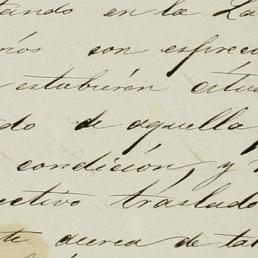 tando en la La
ños con espreci
estubieren estue
do de aquella
condición, y
ectivo traslado
te acerca de tal